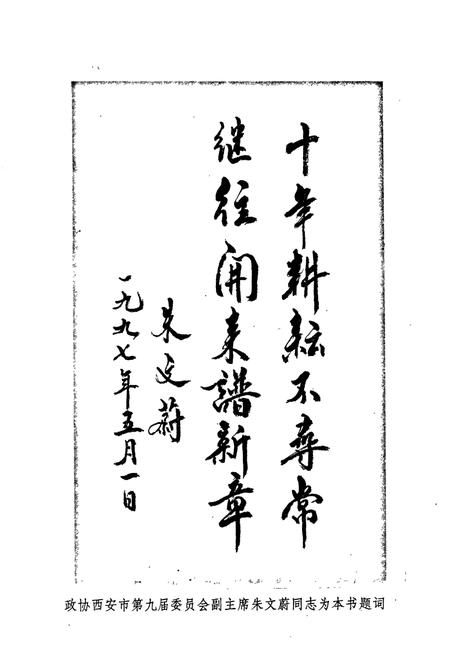 十年耕耘不寻常
继往开来谱新章
朱文蔚
一九九七年五月一日
政协西安市第九届委员会副主席朱文蔚同志为本书题词